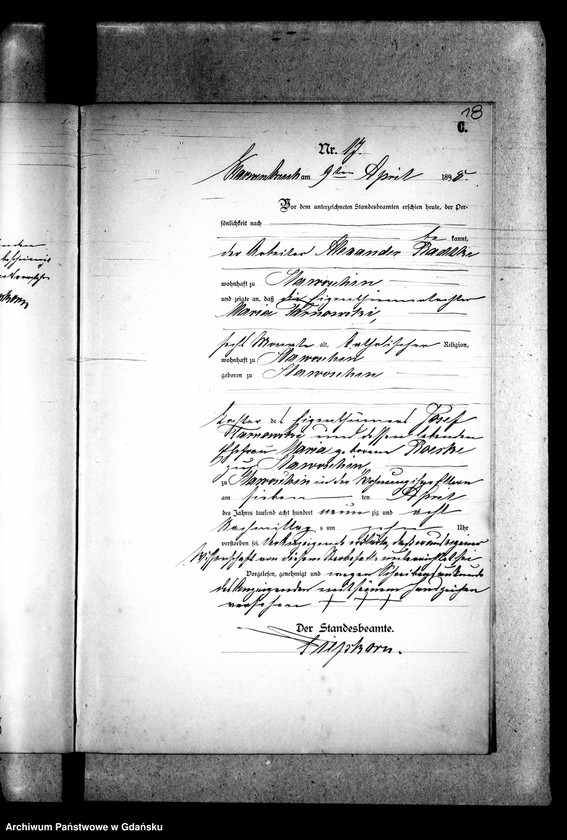 18
C.
Nr. 17.
am 9ten April 1898.
Vor dem unterzeichneten Standesbeamten erschien heute, der Per-
sönlichkeit nach
be kannt,
der Arbeiter Alexander Radtke
wohnhaft zu Stawoschin
und zeigte an, daß die Eigenthümertochter
Maria Tarnowski,
sechs Monate alt, katholischer Religion,
wohnhaft zu Stawoschin
geboren zu Stawoschin
Tochter des Eigenthümers Josef
Tarnowski und dessen lebenden
Ehefrau Maria geborene
zu Stawoschin,
zu Stawoschin in der Wohnung ihrer Eltern
am sieben ten April
des Jahres tausend acht hundert neun zig und acht
Nachmittags um zehn Uhr
verstorben sei. Der Anzeigende erklärte, daß er aus eigener
Wissenschaft von diesem Sterbefalle unterrichtet sei
Vorgelesen, genehmigt und wegen Schreibensunkunde
des Anzeigenden mit seinem Handzeichen
versehen + + +
Der Standesbeamte.
Archiwum Państwowe w Gdańsku